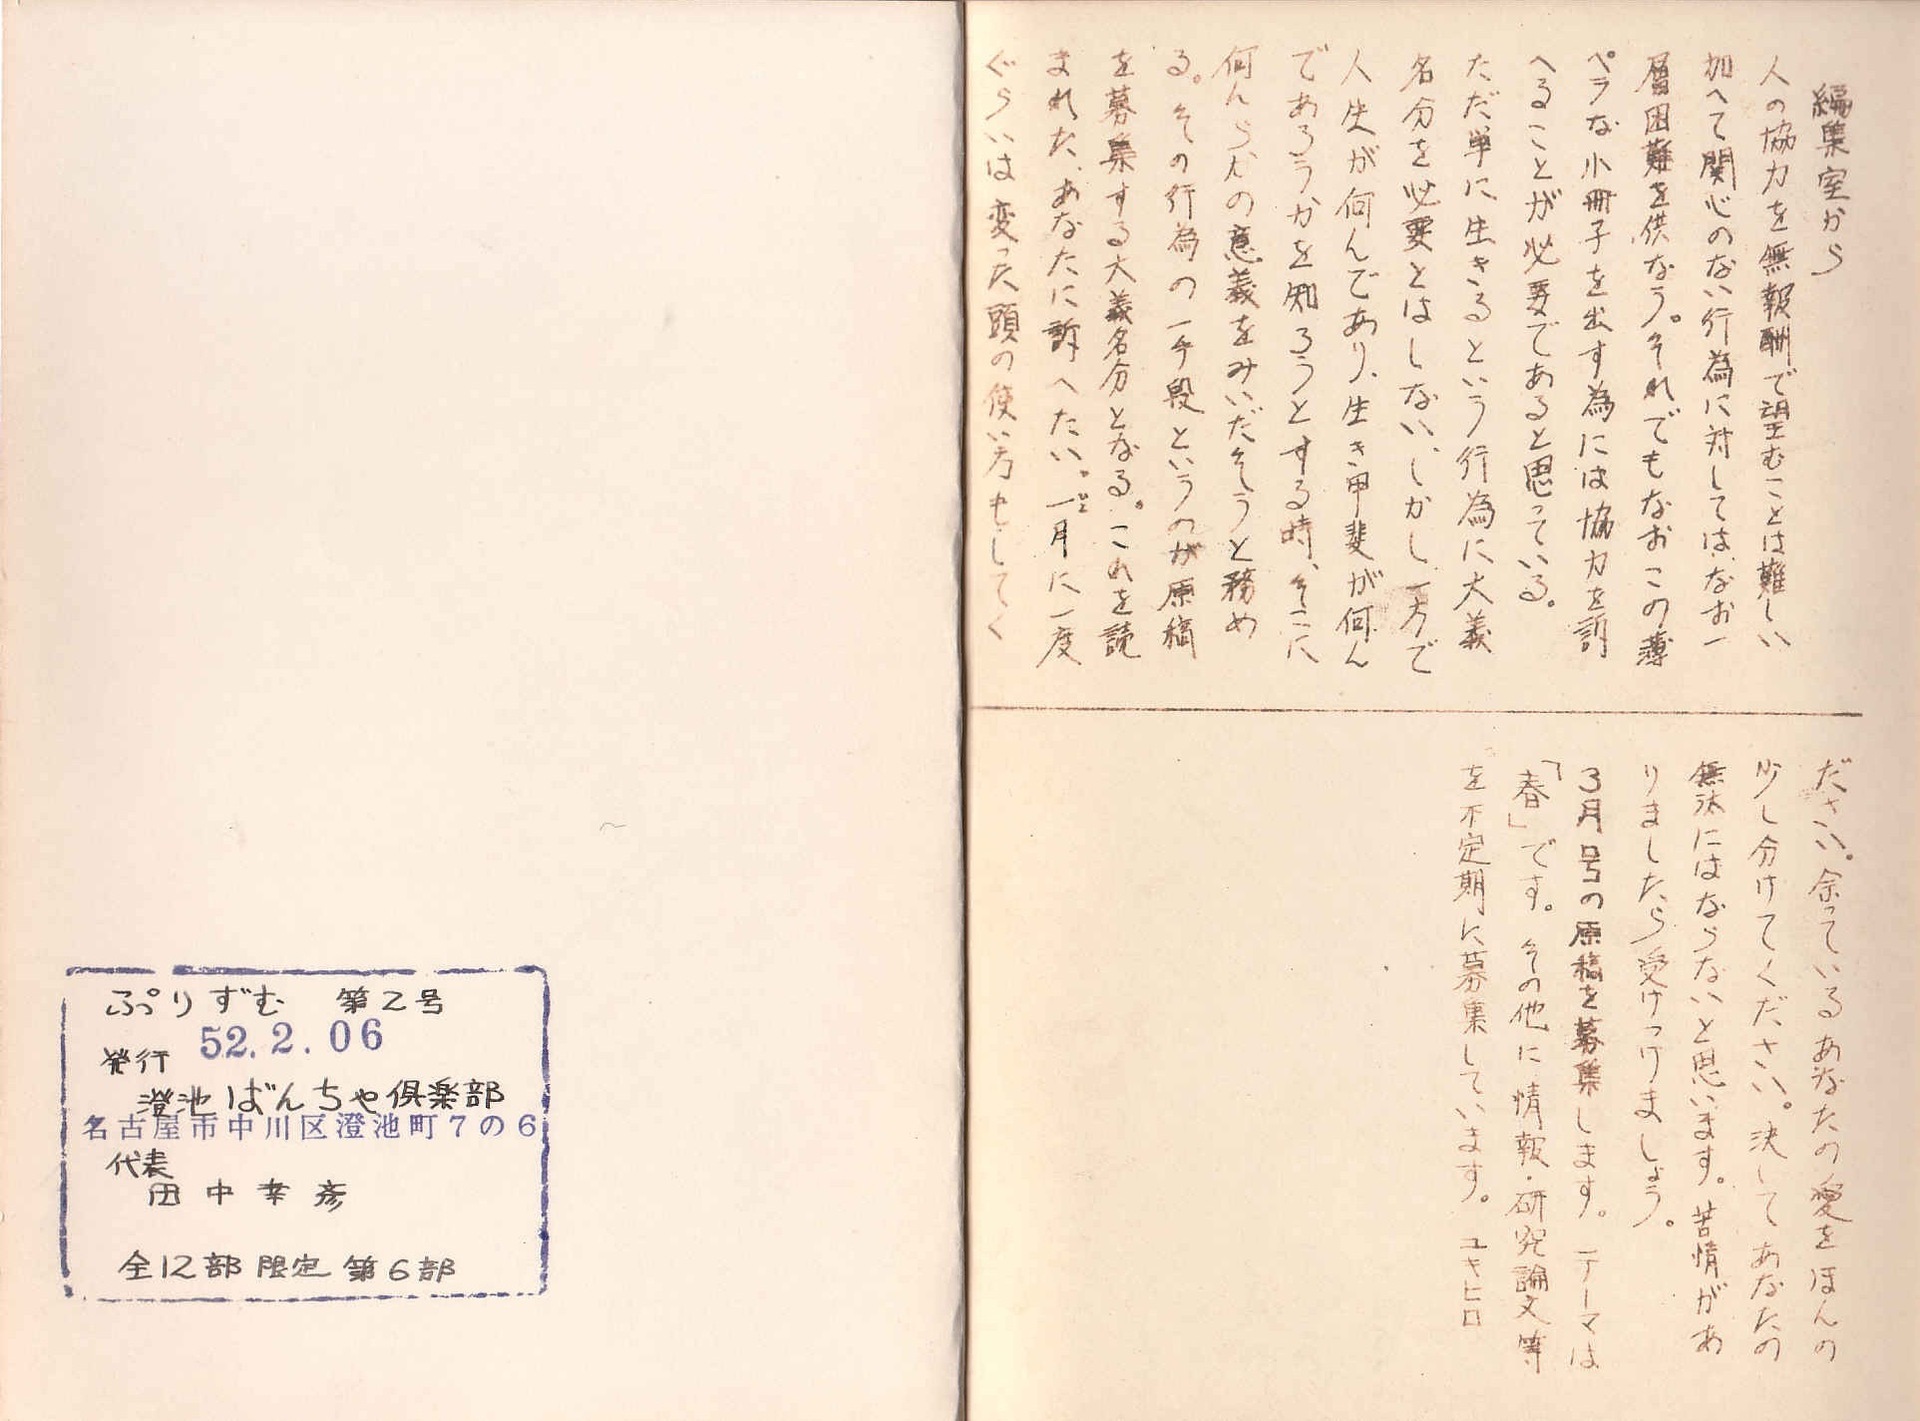 編集室から
人の協力を無報酬で望むことは難しい
加へて関心のない行為に対してはなお一
層困難を供なう。それでもなおこの薄
ペラな小冊子を出す為には協力を訴
へることが必要であると思っている。
ただ単に生きるという行為に大義
名分を必要とはしない、しかし一方で
人生が何んであり、生き甲斐が何ん
であろうかを知ろうとする時、そこに
何んらかの意義をみいだそうと務め
る。その行為の一手段というのが原稿
を募集する大義名分となる。これを読
まれた、あなたに訴へたい。一月に一度
ぐらいは変った頭の使い方もしてく
ださい。余っているあなたの愛をほんの
少し分けてください。決してあなたの
無汰にはならないと思います。苦情があ
りましたら受けつけましょう。
3月号の原稿を募集します。テーマは
「春」です。その他に情報・研究論文等
を不定期に募集しています。ユキヒロ
ぷりずむ 第2号
発行 52.2.06
澄池ばんちゃ倶楽部
名古屋市中川区澄池町7の6
代表
田中幸彦
全12部限定第6部